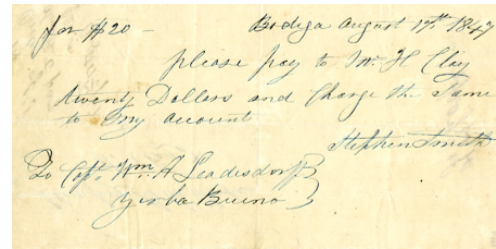 for $20 - Bodega August 17th 1847
please pay to Mr H Clay
twenty Dollars and Charge the Same
to my account
Stephen Smith
To Capt. Wm. A Leadesdorff
Yirba Bueno